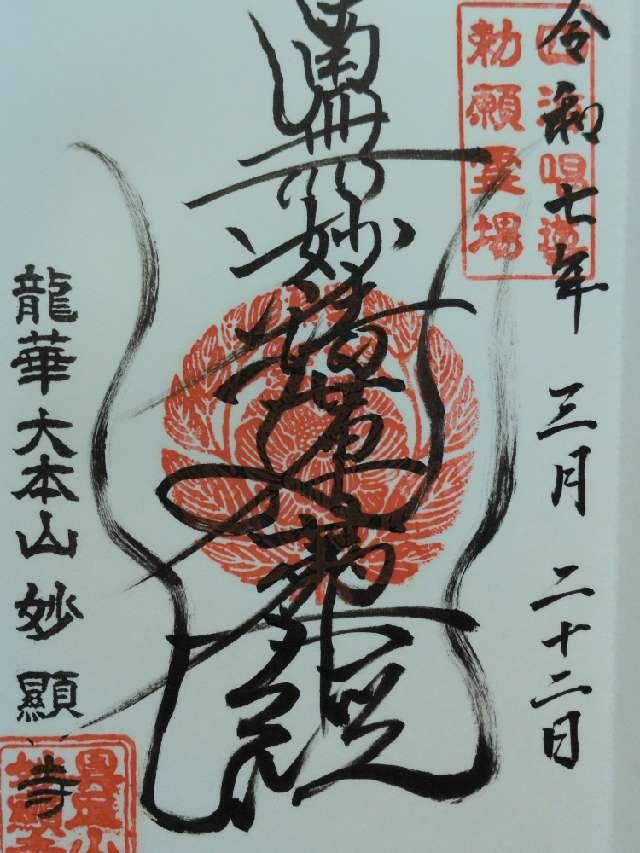 四海唱導
勅願霊場
令和七年 三月 二十二日
南無妙法蓮華経
龍華 大本山 妙顯寺